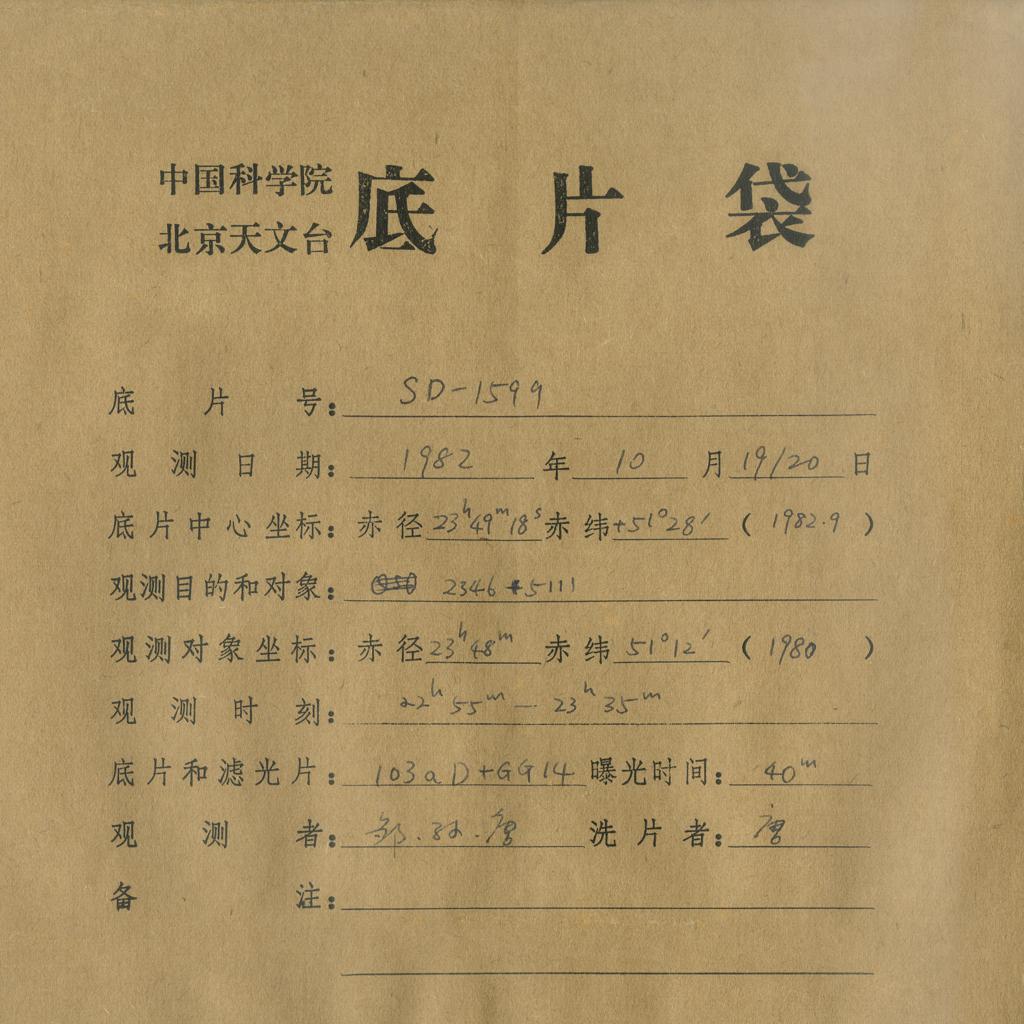 中国科学院
北京天文台
底片袋
底片号：SD-1599
观测日期：1982年10月19/20日
底片中心坐标：赤径23ʰ49ᵐ18ˢ赤纬+51°28′（1982.9）
观测目的和对象：2346+5111
观测对象坐标：赤径23ʰ48ᵐ赤纬51°12′（1980）
观测时刻：22ʰ55ᵐ—23ʰ35ᵐ
底片和滤光片：103aD+GG14曝光时间：40ᵐ
观测者：邹.孙.唐洗片者：唐
备注：